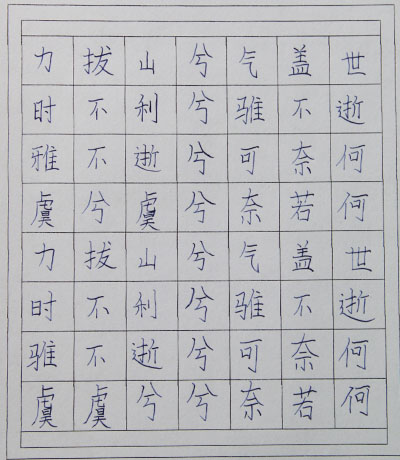 力拔山兮气盖世
时不利兮骓不逝
雅不逝兮可奈何
虞兮虞兮奈若何
力拔山兮气盖世
时不利兮骓不逝
骓不逝兮可奈何
虞虞兮兮奈若何